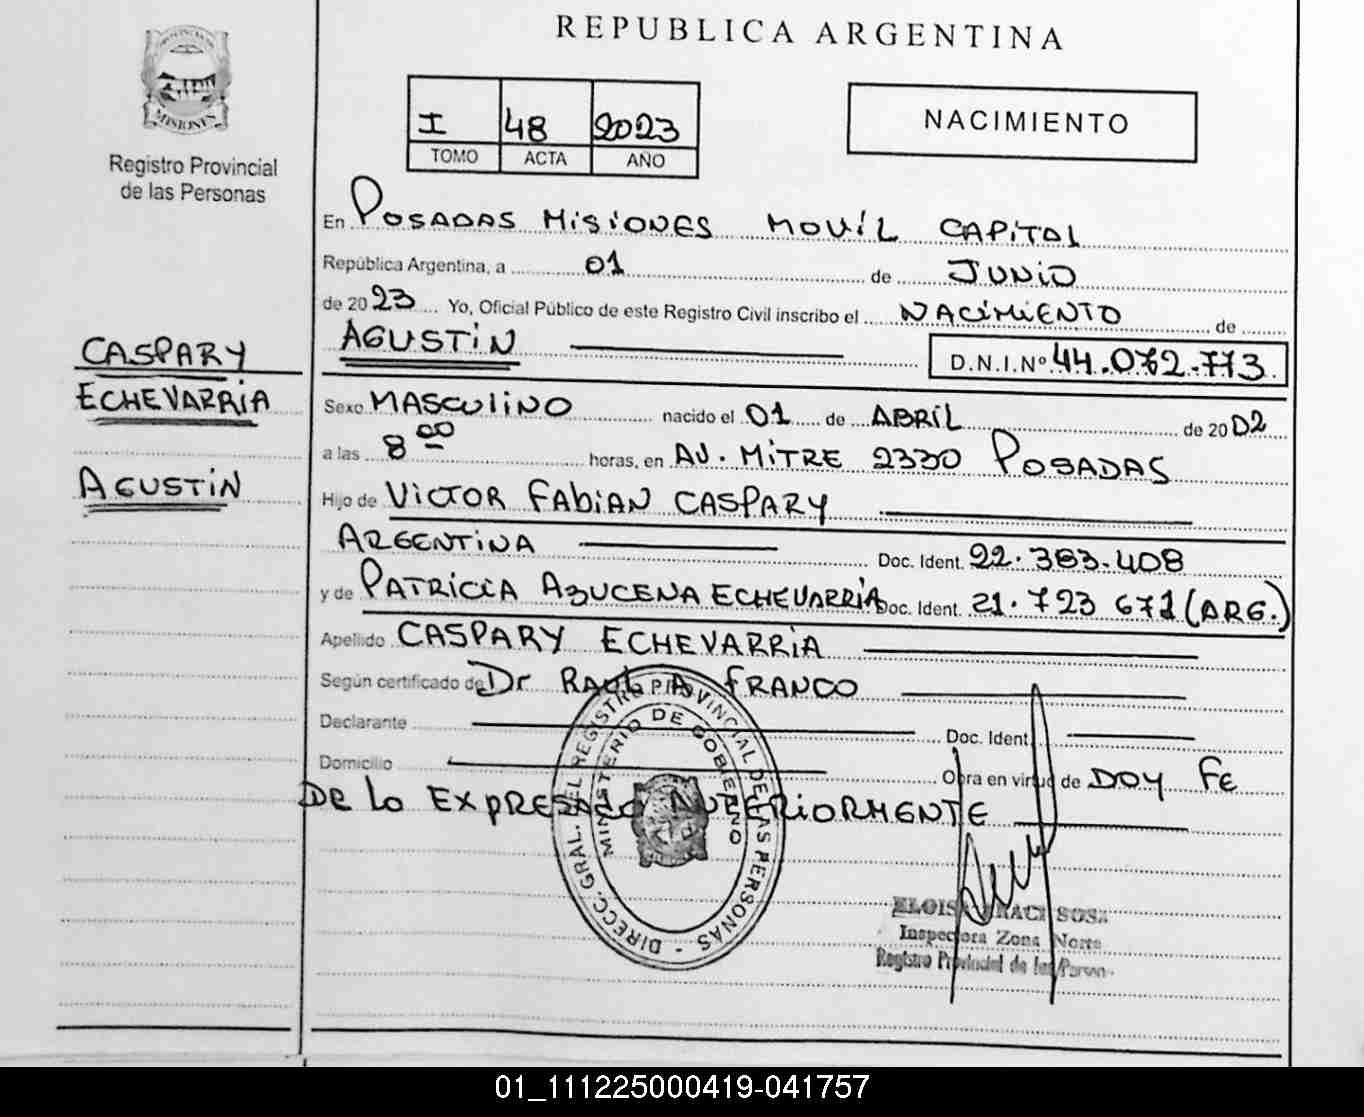 REPUBLICA ARGENTINA
PROVINCIA DE
MISIONES
Registro Provincial
de las Personas
I 48 2023
TOMO ACTA AÑO
NACIMIENTO
En POSADAS MISIONES MOVIL CAPITAL
República Argentina, a 01 de JUNIO
de 2023 Yo, Oficial Público de este Registro Civil inscribo el NACIMIENTO de
AGUSTIN D.N.I.Nº 44.072.773
CASPARY
ECHEVARRIA
AGUSTIN
Sexo MASCULINO nacido el 01 de ABRIL de 2002
a las 8 00 horas, en AV. MITRE 2330 POSADAS
Hijo de VICTOR FABIAN CASPARY
ARGENTINA Doc. Ident. 22.383.408
y de PATRICIA AZUCENA ECHEVARRIA Doc. Ident. 21.723 671 (ARG.)
Apellido CASPARY ECHEVARRIA
Según certificado de Dr RAUL A FRANCO
Declarante Doc. Ident.
Domicilio Obra en virtud de DOY FE
DE LO EXPRESADO ANTERIORMENTE
DIRECC. GRAL. DEL REGISTRO PROVINCIAL DE LAS PERSONAS -
MINISTERIO DE GOBIERNO
SOSA
Inspectora Zona Norte
Registro Provincial de las
01_111225000419-041757